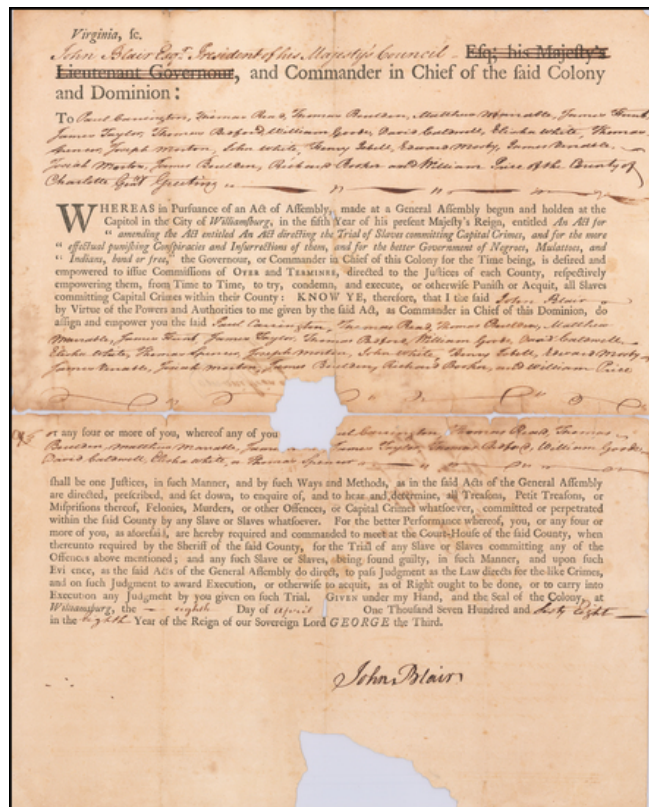 Virginia, ſc.
John Blair Esqr. President of his Majesty's Council Eſq; his Majeſty's
Lieutenant Governour, and Commander in Chief of the ſaid Colony
and Dominion:
To Paul Carrington, Thomas Read, Thomas Bouldin, Matthew Marrable, James Hunt,
James Taylor, Thomas Bedford, William Goode, David Caldwell, Elisha White, Thomas
Spencer, Joseph Morton, John White, Henry Isbell, Edward Mosby, James Venable,
Josiah Morton, James Bouldin, Richard Booker and William Price of the County of
Charlotte Gent. Greeting
WHEREAS in Purſuance of an Act of Aſſembly, made at a General Aſſembly begun and holden at the
Capitol in the City of Williamsburg, in the fifth Year of his preſent Majeſty's Reign, entitled An Act for
“ amending the Act entitled An Act directing the Trial of Slaves committing Capital Crimes, and for the more
“ effectual puniſhing Conſpiracies and Inſurrections of them, and for the better Government of Negroes, Mulattoes, and
“ Indians, bond or free, the Governour, or Commander in Chief of this Colony for the Time being, is deſired and
empowered to iſſue Commiſſions of OYER and TERMINER, directed to the Juſtices of each County, reſpectively
empowering them, from Time to Time, to try, condemn, and execute, or otherwiſe Puniſh or Acquit, all Slaves
committing Capital Crimes within their County: KNOW YE, therefore, that I the ſaid John Blair
by Virtue of the Powers and Authorities to me given by the ſaid Act, as Commander in Chief of this Dominion, do
aſſign and empower you the ſaid Paul Carrington, Thomas Read, Thomas Bouldin, Matthew
Marrable, James Hunt, James Taylor, Thomas Bedford, William Goode, David Caldwell
Elisha White, Thomas Spencer, Joseph Morton, John White, Henry Isbell, Edward Mosby
James Venable, Josiah Morton, James Bouldin, Richard Booker, and William Price
or any four or more of you, whereof any of you Carrington, Thomas Read, Thomas
Bouldin, Matthew Marrable, James Taylor, Thomas Bedford, William Goode
David Caldwell, Elisha White, or Thomas Spencer
ſhall be one Juſtices, in ſuch Manner, and by ſuch Ways and Methods, as in the ſaid Acts of the General Aſſembly
are directed, preſcribed, and ſet down, to enquire of, and to hear and determine, all Treaſons, Petit Treaſons, or
Miſpriſions thereof, Felonies, Murders, or other Offences, or Capital Crimes whatſoever, committed or perpetrated
within the ſaid County by any Slave or Slaves whatſoever. For the better Performance whereof, you, or any four or
more of you, as aforeſaid, are hereby required and commanded to meet at the Court-Houſe of the ſaid County, when
thereunto required by the Sheriff of the ſaid County, for the Trial of any Slave or Slaves committing any of the
Offences above mentioned; and any ſuch Slave or Slaves, being found guilty, in ſuch Manner, and upon ſuch
Evi ence, as the ſaid Acts of the General Aſſembly do direct, to paſs Judgment as the Law directs for the like Crimes,
and on ſuch Judgment to award Execution, or otherwiſe to acquit, as of Right ought to be done, or to carry into
Execution any Judgment by you given on ſuch Trial. GIVEN under my Hand, and the Seal of the Colony, at
Williamsburg, the eighth Day of April One Thouſand Seven Hundred and Sixty Eight
in the Eighth Year of the Reign of our Sovereign Lord GEORGE the Third.
John Blair